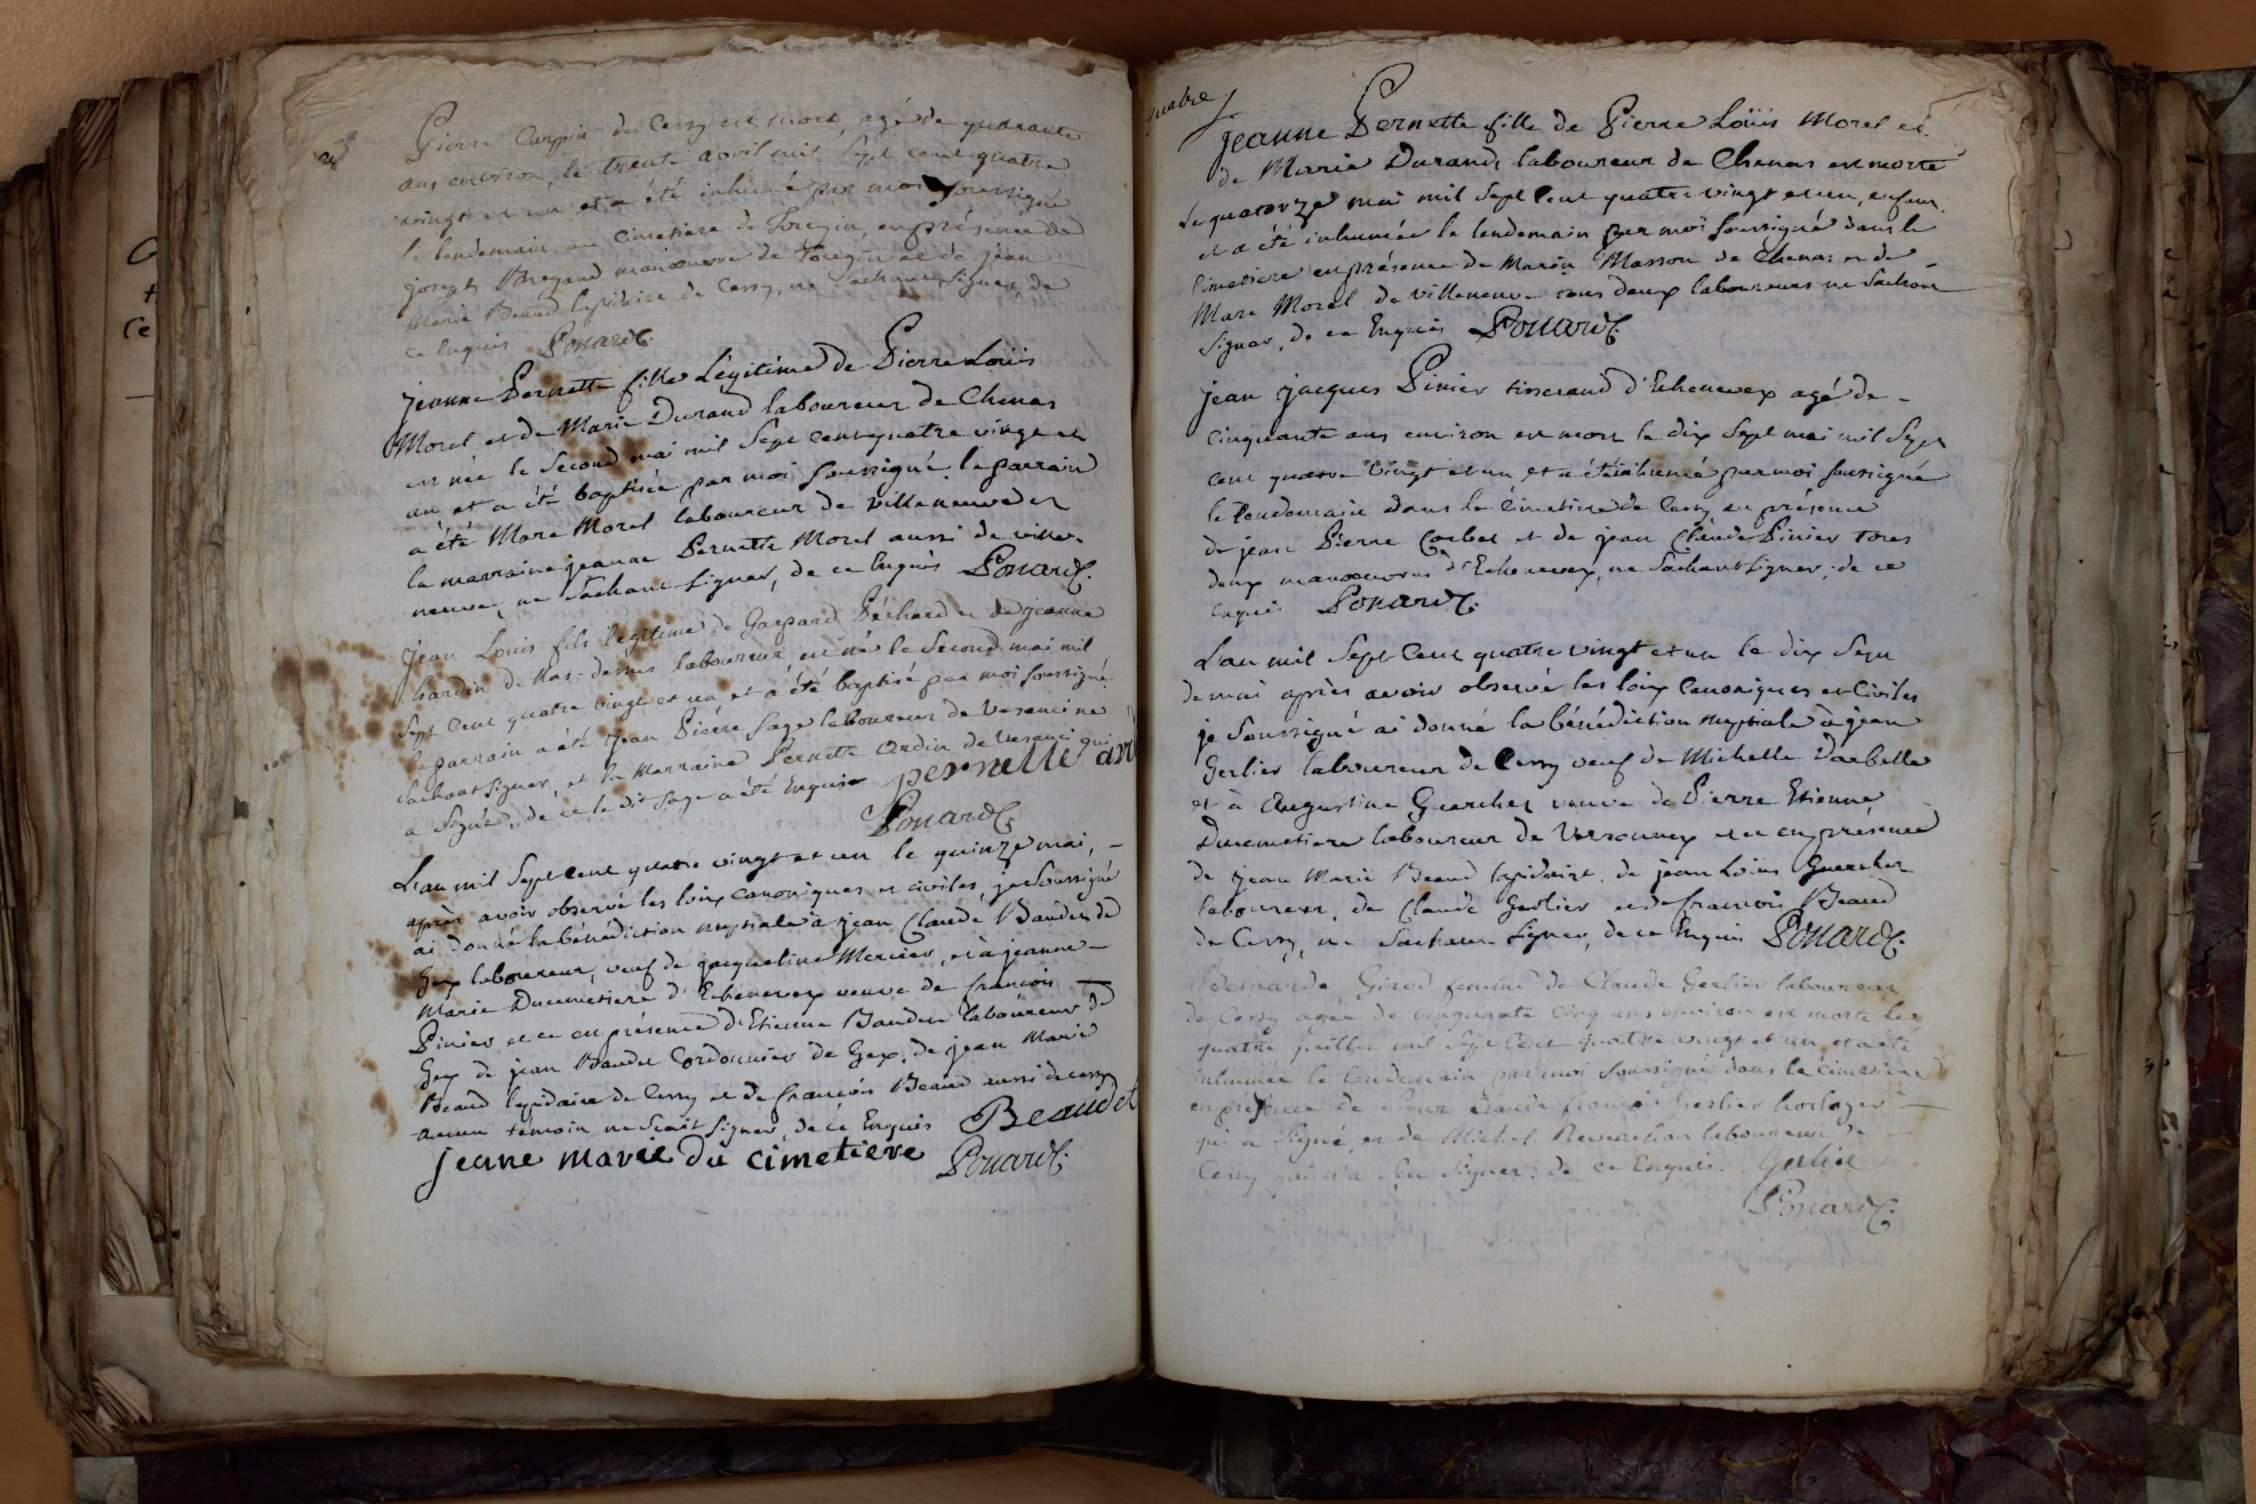 Pierre Carppin de Cessy est mort, agé de quarante
ans environ, le trente avril mil sept cent quatre
vingt et un et a été inhumé par moi soussigné
le lendemain au cimetiere de Tougin, en présence de
joseph Bregand manoeuvre de Tougin et de jean
Marie Beaud lapidaire de Cessy, ne sachant signer, de
ce Enquis Ponard C.
jeanne Pernette fille Légitime de Pierre Loüis
Morel et de Marie Durand laboureur de Chenas
est née le second mai mil sept cent quatre vingt et
un et a été baptisée par moi soussigné le parrain
a été Marc Morel laboureur de villeneuve et
la marraine jeanne Pernette Morel aussi de ville-
neuve, ne sachant signer, de ce Enquis Ponard C.
jean Louis fils légitime de Gaspard Péchard et de jeanne
hardin de Mas-dessus laboureur est né le second mai mil
sept cent quatre vingt et un et a été baptisé par moi soussigné
le parrain a été jean Pierre Sage laboureur de Vesanci ne
sachant signer, et la Marraine Pernette Ardin de Vesanci qui
a signé, de ce le dit Sage a été Enquis pernette ard
Ponard C.
L'an mil sept cent quatre vingt et un le quinze mai,
après avoir observé les loix canoniques et civiles, je soussigné
ai donné la bénédiction nuptiale à jean Claude Baudet de
Gex laboureur, veuf de jacqueline Mercier, et à jeanne
Marie Ducimetiere d'Echenevex veuve de francois
Pinier et ce en présence d'Etienne Baudet laboureur de
Gex de jean Baudet Cordonnier de Gex, de jean Marie
Beaud lapidaire de Cessy et de francois Beaud aussi de cessy
aucun témoin ne scait signer, de ce Enquis Beaudet
jeane marie du cimetiere Ponard C.
quatre
jeanne Pernette fille de Pierre Loüis Morel et
de Marie Durand, laboureur de Chenas est morte
le quatorze mai mil sept cent quatre vingt et un, enfant
et a été inhumée le lendemain par moi soussigné dans le
Cimetiere en présence de Marin Masson de Chenas et de
Marc Morel de villeneuve tous deux laboureurs ne sachant
signer, de ce Enquis Ponard C.
jean jacques Pinier tisserand d'Echenevex agé de
cinquante ans environ est mort le dix sept mai mil sept
cent quatre vingt et un et a été inhumé par moi soussigné
le lendemain dans le cimetiere de Cessy en présence
de jean Pierre Corbet et de jean Claude Pinier tous
deux manoeuvres d'Echenevex, ne sachant signer, de ce
enquis Ponard C.
L'an mil sept cent quatre vingt et un le dix sept
de mai après avoir observé les loix Canoniques et Civiles
je soussigné ai donné la bénédiction nuptiale à jean
Gerlier laboureur de Cessy veuf de Michelle Darbelle
et à Augustine Guerchet veuve de Pierre Etienne
Ducimetiere laboureur de Versonnex et ce en présence
de jean Marie Beaud lapidaire, de jean Loüis Guerchet
laboureur, de Claude Gerlier et de francois Beaud
de Cessy, ne sachant signer, de ce Enquis Ponard C.
Bernarde Girod femme de Claude Gerlier laboureur
de Cessy agée de cinquante cinq ans environ est morte le
quatre juillet mil sept cent quatre vingt et un, et a été
inhumée le lendemain par moi soussigné dans le cimetiere
en présence de sieur Claude francois Gerlier horloger
qui a signé, et de Michel Reverchon laboureur de
Cessy qui n'a sçu signer, de ce Enquis. Gerlier
Ponard C.